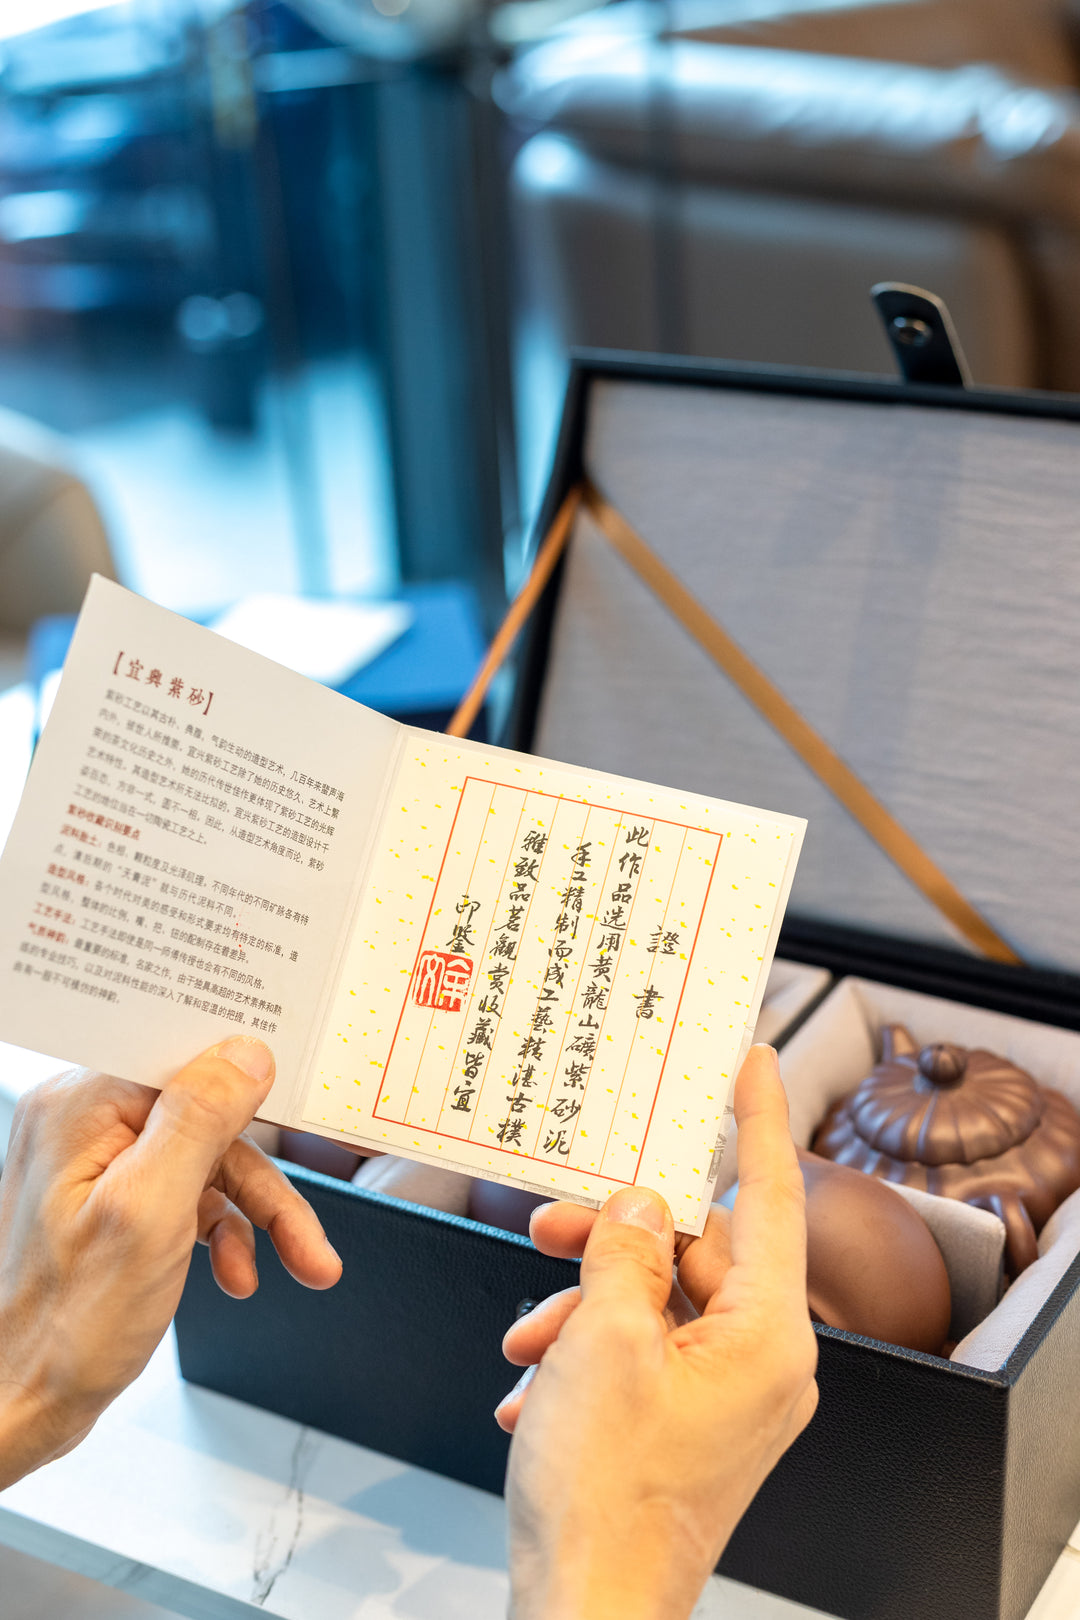 【宜興紫砂】
紫砂工艺以其古朴、典雅、气韵生动的造型艺术，几百年来蜚声海
内外，被世人所推崇。宜兴紫砂工艺除了她的历史悠久、艺术上繁
荣的茶文化历史之外，她的历代传世佳作更体现了紫砂工艺的光辉
艺术特性。其造型艺术所无法比拟的，宜兴紫砂工艺的造型设计千
姿百态，方非一式，圆不一相。因此，从造型艺术角度而论，紫砂
工艺的地位当在一切陶瓷工艺之上。
紫砂收藏识别要点
泥料胎土：色相、颗粒度及光泽肌理，不同年代的不同矿脉各有特
点，清后期的“天青泥”就与历代泥料不同。
造型风格：各个时代对美的感受和形式要求均有特定的标准，造
型风格、整体的比例，嘴、把、钮的配制存在着差异。
工艺手法：工艺手法即使是同一师傅传授也会有不同的风格。
气质神韵：最重要的标准，名家之作，由于独具高超的艺术素养和熟
练的专业技巧，以及对泥料性能的深入了解和窑温的把握，其佳作
具有一般不可模仿的神韵。
證書
此作品选用黄龍山礦紫砂泥
手工精制而成工藝精湛古樸
雅致品茗觀赏收藏皆宜
印鑒